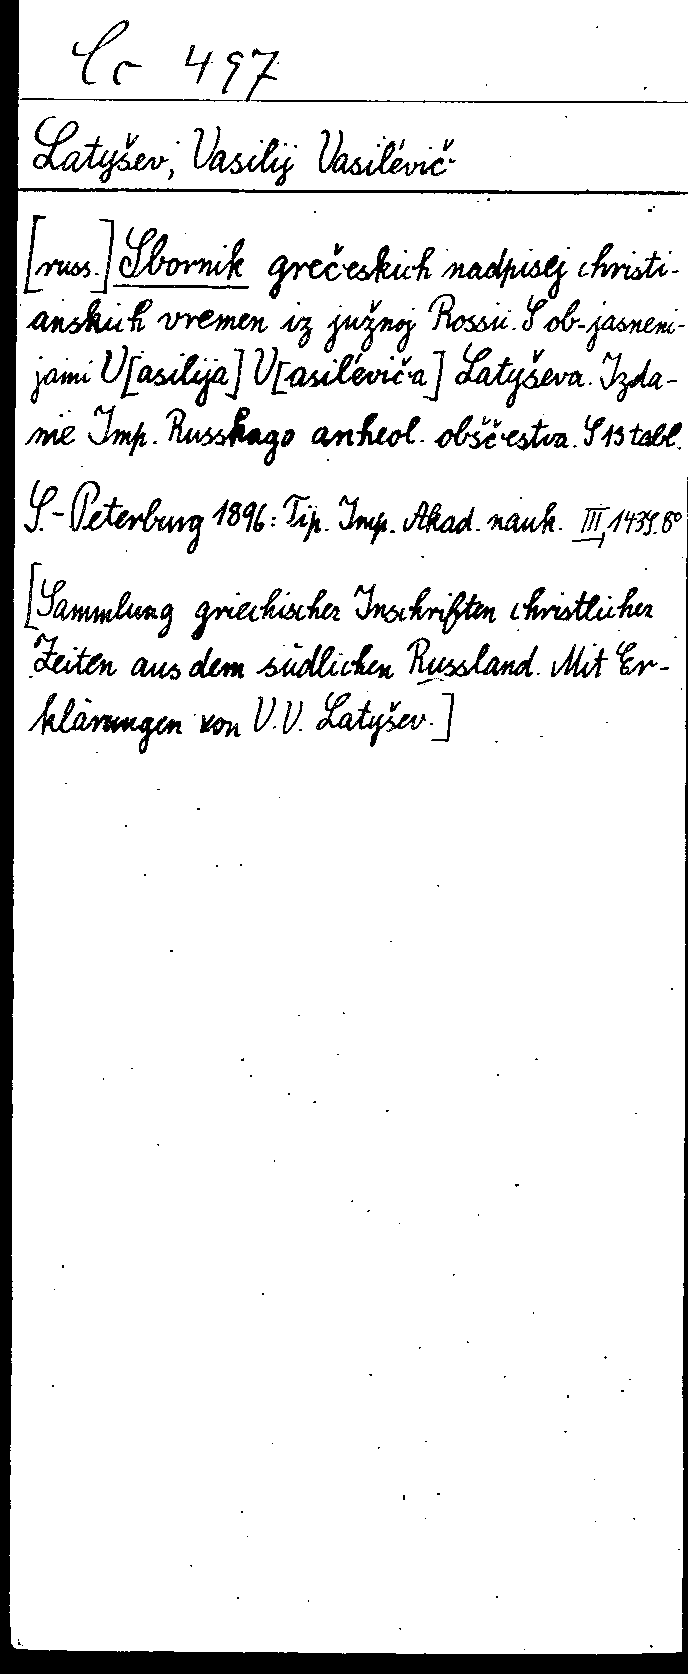 Cc 497
Latyšev, Vasilij Vasil'evič
[russ.] Sbornik grečeskich nadpisej christi-
anskich vremen iz južnoj Rossii. S ob-jasneni-
jami V[asilija] V[asil'eviča] Latyševa. Izda-
nie Imp. Russkago arheol. obščestva. S 13 tabl.
S.-Peterburg 1896: Tip. Imp. Akad. nauk. III, 143 S. 8°
[Sammlung griechischer Inschriften christlicher
Zeiten aus dem südlichen Russland. Mit Er-
klärungen von V. V. Latyšev.]